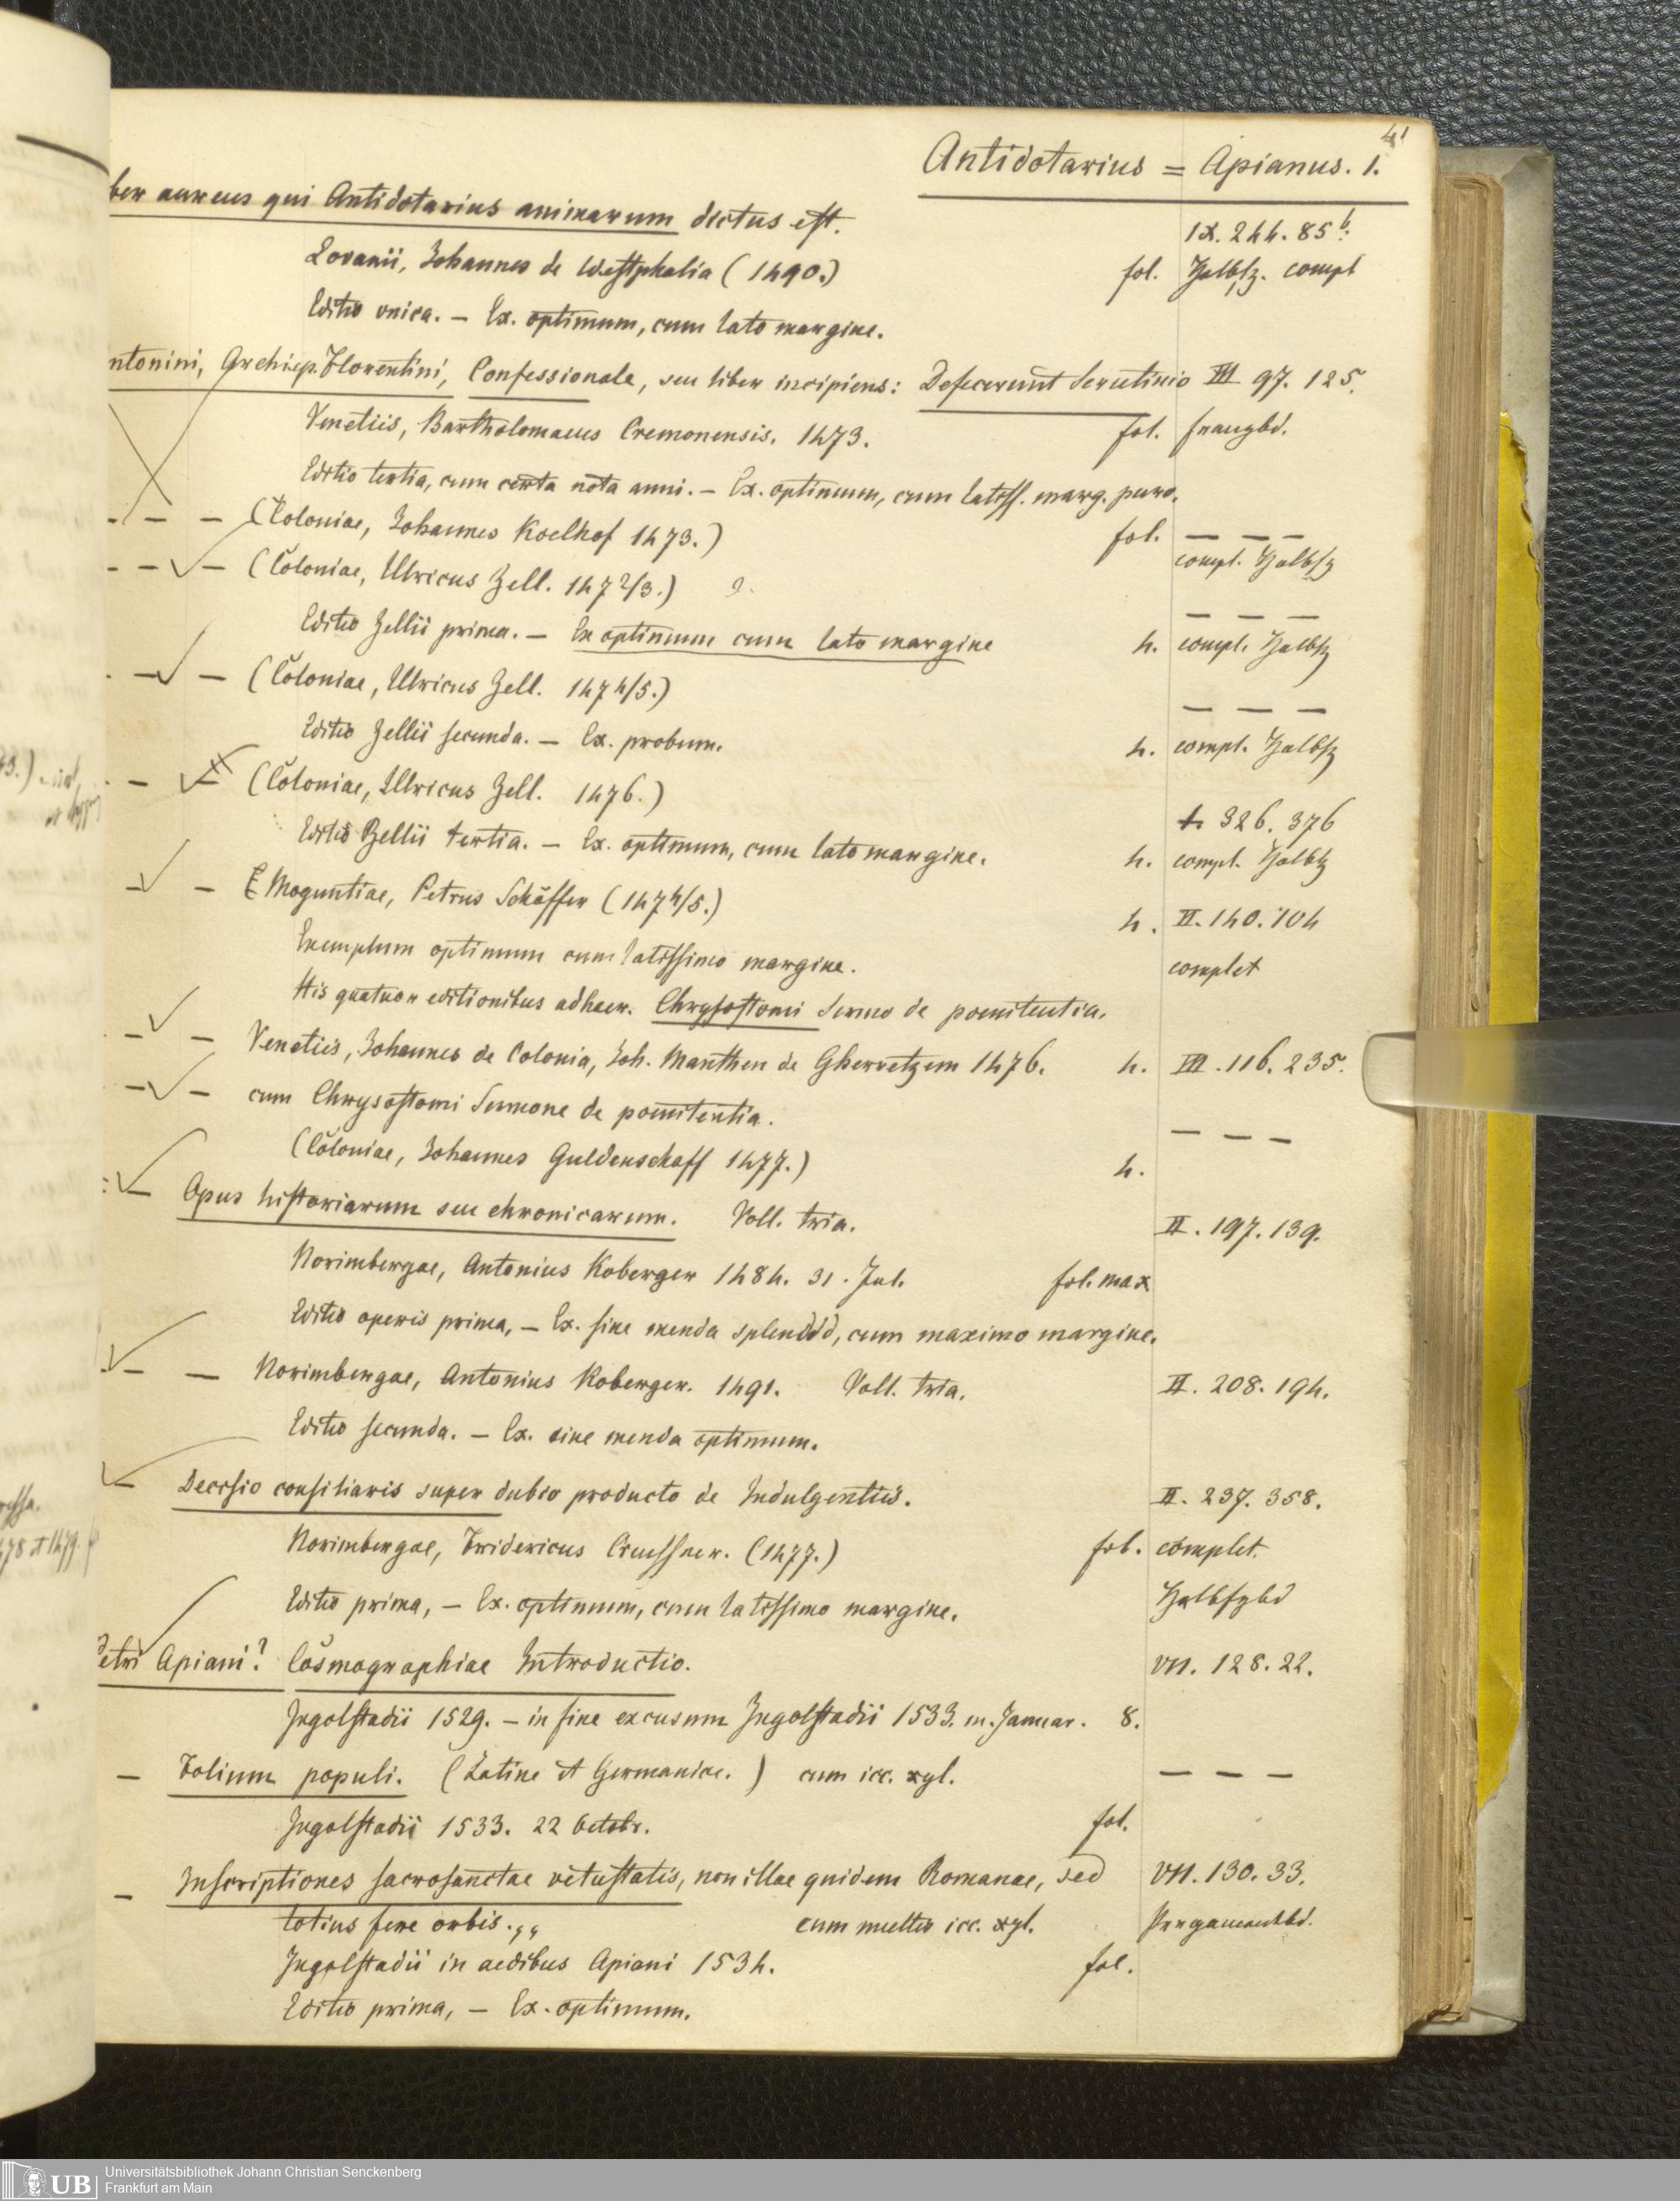 41
Antidotarius = Apianus. 1.
ber aureus qui Antidotarius animarum dictus est. IX. 244. 85 b:
Lovanii, Johannes de Westphalia (1490.) fol. Halbfz. compl
Editio unica. — Ex. optimum, cum lato margine.
ntonini, Archiep. Florentini, Confessionale, seu liber incipiens: Defecerunt Scrutinio III 97. 125.
Venetiis, Bartholomaeus Cremonensis. 1473. fol. franzbd.
Editio tertia, cum certa nota anni. — Ex. optimum, cum latiss. marg. puro.
- — — (Coloniae, Johannes Koelhof 1473.) fol. — — —
compl. Halbfz
- — — (Coloniae, Ulricus Zell. 1472/3.) — — —
Editio Zellii prima. — Ex optimum cum lato margine 4. compl. Halbfz
- — — (Coloniae, Ulricus Zell. 1474/5.) — — —
Editio Zellii secunda. — Ex. probum. 4. compl. Halbfz
- — — (Coloniae, Ulricus Zell. 1476.) 326. 376
Editio Zellii tertia. — Ex. optimum, cum lato margine. 4. compl. Halbfz
— — Moguntiae, Petrus Schöffer (1474/5.) 4. II. 140. 104
Exemplum optimum cum latissimo margine. complet
His quatuor editionibus adhaer. Chrysostomi Sermo de poenitentia.
— — Venetiis, Johannes de Colonia, Joh. Manthen de Gherretzem 1476. 4. III. 116. 235.
— — cum Chrysostomi Sermone de poenitentia. — — —
(Coloniae, Johannes Guldenschaff 1477.) 4.
— Opus historiarum seu chronicarum. Voll. tria. II. 197. 139.
Norimbergae, Antonius Koberger 1484. 31. Jul. fol. max
Editio operis prima, — Ex. sine menda splendid, cum maximo margine.
— — Norimbergae, Antonius Koberger. 1491. Voll. tria. II. 208. 194.
Editio secunda. — Ex. sine menda optimum.
— Decisio consiliaris super dubio producto de Indulgentiis. II. 237. 358.
Norimbergae, Fridericus Creussner. (1477.) fol. complet.
Editio prima, — Ex. optimum, cum latissimo margine. Halbfzbd
etri Apiani? Cosmographiae Introductio. VII. 128. 22.
Ingolstadii 1529. — in fine excusum Ingolstadii 1533. m. Januar. 8.
— Folium populi. (Latine et Germanice.) cum icc. xyl. — — —
Ingolstadii 1533. 22 Octobr. fol.
— Inscriptiones sacrosanctae vetustatis, non illae quidem Romanae, sed VII. 130. 33.
totius fere orbis.,, cum multis icc. xyl. Pergamentbd.
Ingolstadii in aedibus Apiani 1534. fol.
Editio prima, — Ex. optimum.
UB Universitätsbibliothek Johann Christian Senckenberg
Frankfurt am Main